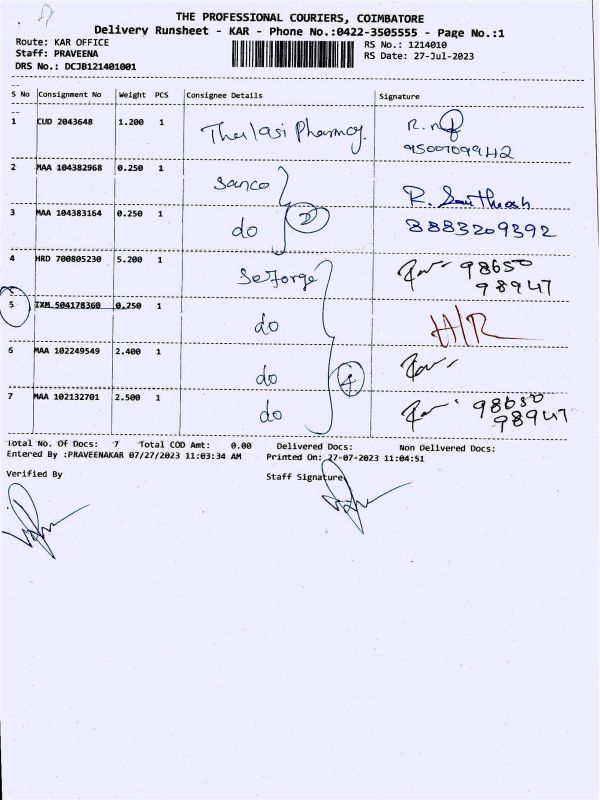 THE PROFESSIONAL COURIERS, COIMBATORE
Delivery Runsheet - KAR - Phone No.:0422-3505555 - Page No.:1
Route: KAR OFFICE RS No.: 1214010
Staff: PRAVEENA RS Date: 27-Jul-2023
DRS No.: DCJB121401001
S No Consignment No Weight PCS Consignee Details Signature
1 CUD 2043648 1.200 1 Thulasi Pharmacy.
2 MAA 104382968 0.250 1 Sanco R. Santhosh
3 MAA 104383164 0.250 1 do 2 8883209392
4 HRD 700805230 5.200 1 Seforge 98650
98947
5 IXM 504178360 0.250 1 do H/R
6 MAA 102249549 2.400 1 do 4
7 MAA 102132701 2.500 1 do 98650
98947
Total No. Of Docs: 7 Total COD Amt: 0.00 Delivered Docs: Non Delivered Docs:
Entered By :PRAVEENAKAR 07/27/2023 11:03:34 AM Printed On: 27-07-2023 11:04:51
Verified By Staff Signature